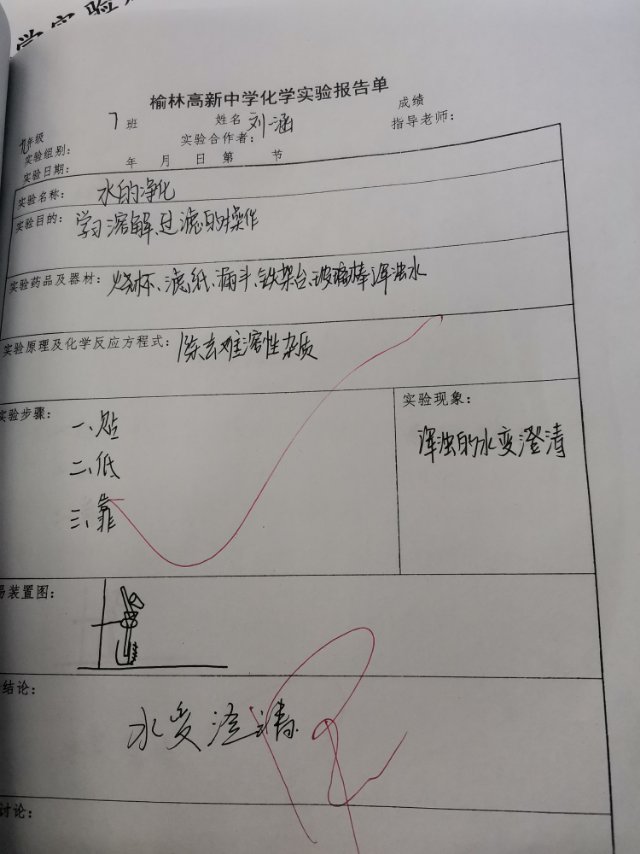 学实验
榆林高新中学化学实验报告单
九年级 7 班 姓名 刘一涵 成绩
实验组别： 实验合作者： 指导老师：
实验日期： 年 月 日 第 节
实验名称： 水的净化
实验目的： 学习溶解、过滤的操作
实验药品及器材： 烧杯、滤纸、漏斗、铁架台、玻璃棒 浑浊水
实验原理及化学反应方程式： 除去难溶性杂质
实验步骤：
一、贴
二、低
三、靠
实验现象：
浑浊的水变澄清
易装置图：
结论：
水变澄清.
讨论：